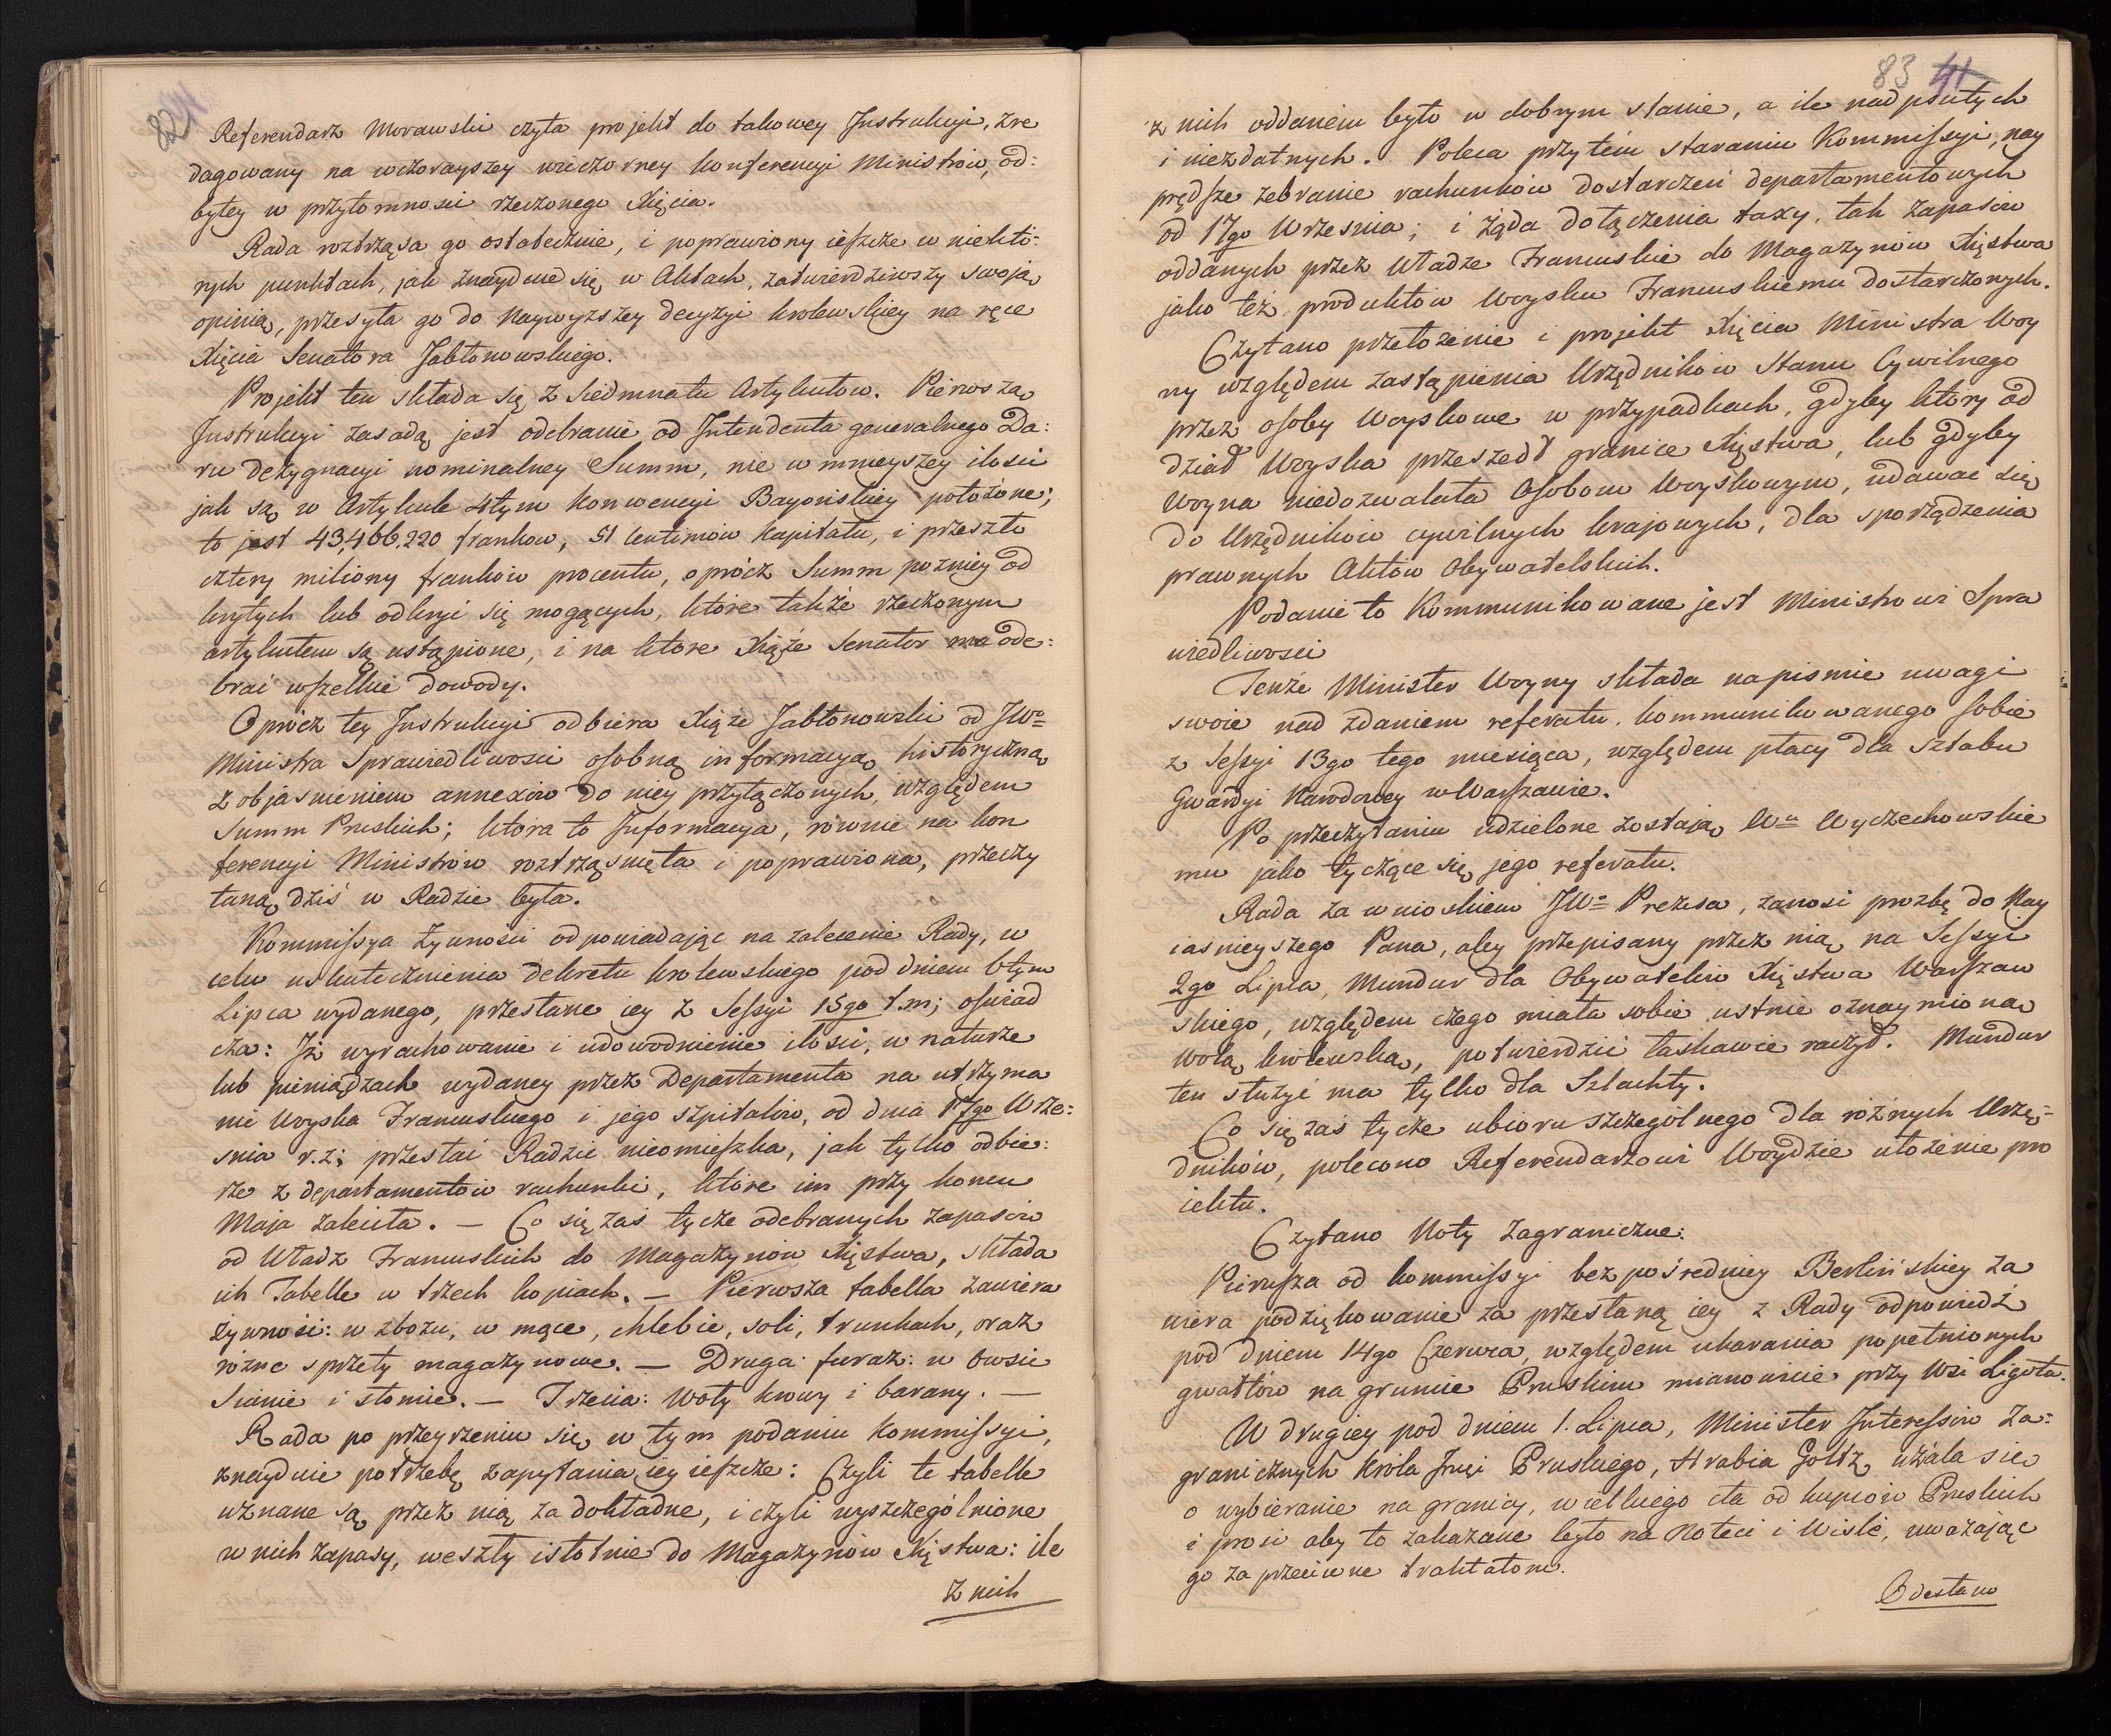 82
Referendarz Morawski czyta projekt do takowey Instrukcyi, zre
dagowany na wczorayszey wieczorney konferencyi Ministrów, od:
bytey w przytomnosci rzeczonego Xięcia.
Rada roztrząsa go ostatecznie, i poprawiony ieszcze w niektó:
rych punktach, jak znayduie się w Aktach, zatwierdziwszy swoją
opinią, przesyła go do Naywyższey decyzyi krolewskiey na ręce
Xięcia Senatora Jabłonowskiego.
Projekt ten składa się z siedmnastu Artykułow. Pierwszą
Instrukcyi zasadą jest odebranie od Intendenta generalnego Da:
ru dezygnacyi nominalney Summ, nie w mnieyszey ilosci
jak są w Artykule 4tym Konwencyi Bayońskiey położone;
to jest 43,466,220 frankow, 51 Centimów kapitału, i przeszło
cztery miliony franków procentu, oprócz Summ pozniey od
krytych lub odkryć się mogących, które także rzeczonym
artykułem są ustąpione, i na które Xiąże Senator ma ode:
brać wszelkie dowody.
Oprócz tey Instrukcyi odbiera Xiąże Jabłonowski od JWo
Ministra Sprawiedliwosci osobną informacyą historyczną
z objasnieniem annexów do niey przyłączonych, względem
Summ Pruskich; która to Informacya, równie na kon
ferencyi Ministrów roztrząsnięta i poprawiona, przeczy
taną dziś w Radzie była.
Kommissya Żywnosci odpowiadając na zalecenie Rady, w
celu uskutecznienia dekretu krolewskiego pod dniem 6tym
Lipca wydanego, przesłane iey z Sessyi 15go t.m; oświad
cza: Iż wyrachowanie i udowodnienie ilości, w naturze
lub pieniądzach wydaney przez Departamenta na utrzyma
nie Woyska Francuskiego i jego szpitalów, od dnia 17go Wrze:
snia r.z; przesłać Radzie nieomieszka, jak tylko odbie:
rze z departamentów rachunki, które im przy koncu
Maja zaleciła. — Co się zaś tycze odebranych zapasów
od Władz Francuskich do Magazynów Xięstwa, składa
ich Tabelle w trzech kopiach. — Pierwsza tabella zawiera
żywność: w zbożu, w mące, chlebie, soli, trunkach, oraz
rózne sprzęty magazynowe. — Druga furaz: w Owsie
Sianie i słomie. — Trzecia: Woły krowy i barany. —
Rada po przeyrzeniu się w tym podaniu Kommissyi,
znayduie potrzebę zapytania iey ieszcze: Czyli te tabelle
uznane są przez nią za dokładne, i czyli wyszczególnione
w nich zapasy, weszły istotnie do Magazynów Xięstwa: ile
z nich
83 41
z nich oddaniem było w dobrym stanie, a ile nadpsutych
i niezdatnych. Poleca przytém staraniu Kommissyi, nay
prędsze zebranie rachunków dostarczeń departamentowych
od 17go Wrzesnia; i żąda dołączenia taxy, tak zapasów
oddanych przez Władze Francuskie do Magazynów Xięstwa
jako też produktów Woysku Francuskiemu dostarczonych.
Czytano przełożenie i projekt Xięcia Ministra Woy
ny względem zastąpienia Urzędników Stanu Cywilnego
przez osoby Woyskowe w przypadkach, gdyby który od
dział Woyska przeszedł granice Xięstwa, lub gdyby
Woyna niedozwalała Osobom Woyskowym, udawać się
do Urzędników cywilnych krajowych, dla sporządzenia
prawnych Aktów Obywatelskich.
Podanie to Kommunikowane jest Ministrowi Spra
wiedliwosci
Tenże Minister Woyny składa na pismie uwagi
swoie nad zdaniem referatu, kommunikowanego sobie
z Sessyi 13go tego miesiąca, względem płacy dla Sztabu
Gwardyi Narodowey w Warszawie.
Po przeczytaniu udzielone zostają Wu Wyczechowskie
mu jako tyczące się jego referatu.
Rada za wnioskiem JWo Prezesa, zanosi prozbę do Nay
iasnieyszego Pana, aby przepisany przez nią na Sessyi
2go Lipca, Mundur dla Obywatelów Xięstwa Warszaw
skiego, względem czego miała sobie ustnie oznaymioną
wolą królewską, potwierdzić łaskawie raczył. Mundur
ten służyć ma tylko dla Szlachty.
Co się zaś tycze ubioru szczególnego dla różnych Urzę:
dników, polecono Referendarzowi Woydzie ułożenie pro
iektu.
Czytano Noty Zagraniczne:
Pierwsza od kommissyi bezpośredniey Berlińskiey za
wiera podziękowanie za przesłaną iey z Rady odpowiedź
pod dniem 14go Czerwca, względem ukarania popełnionych
gwałtów na gruncie Pruskim mianowicie przy Wsi Ligota.
W drugiey pod dniem 1. Lipca, Minister Interessów Za:
granicznych Króla Jmci Pruskiego, Hrabia Goltz, użala się
o wybieranie na granicy, wielkiego cła od kupców Pruskich
i prosi aby to zakazane było na Noteci i Wisle, uważając
go za przeciwne traktatom.
Odesłano